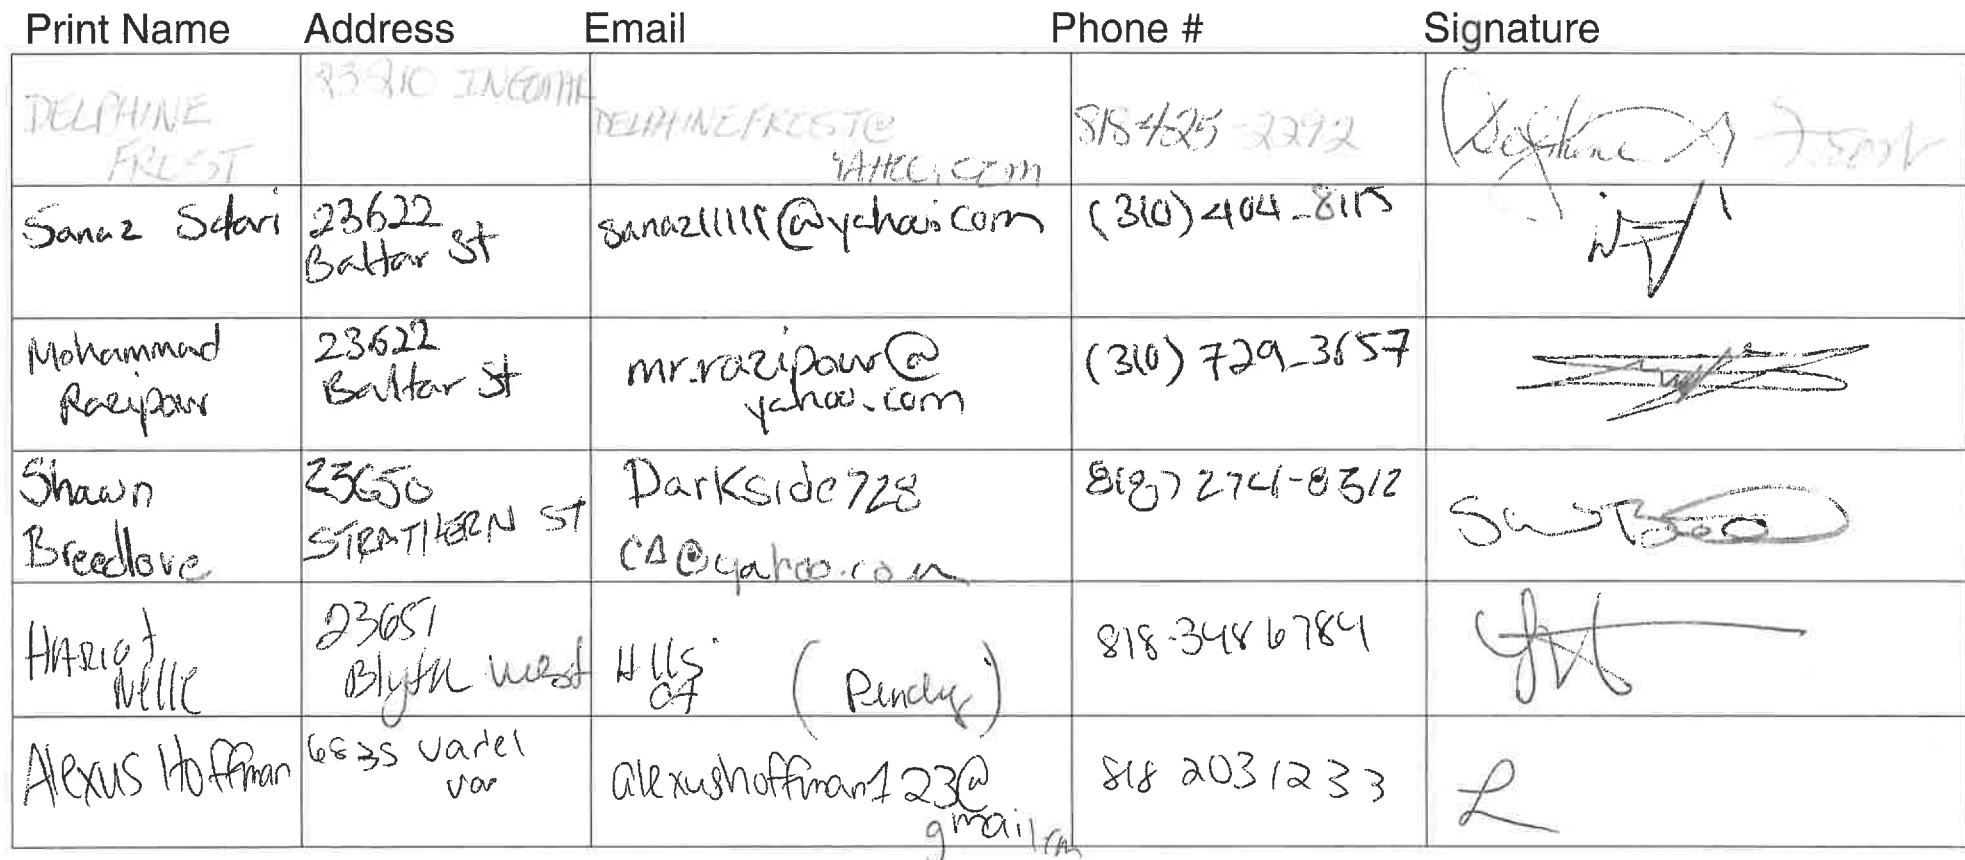 Print Name Address Email Phone # Signature
DELPHINE
FROST
INGOMAR
DELPHINEFROST@
YAHOO.COM
818 425-2292
Delphine Frost
Sanaz Safari
23622
Baltar St
(310) 404-8115
Mohammad
Razipour
23622
Baltar St
mr.razipour@
yahoo.com
(310) 729-3657
Shawn
Breedlove
23650
STRATHERN ST
Darkside728
CA@yahoo.com
818)
Nelle
23651
Blyth West
Hlls
CA
818-348 6784
Alexus Hoffman
6835 Variel
alexushoffman123@
gmail.com
818 203 1233